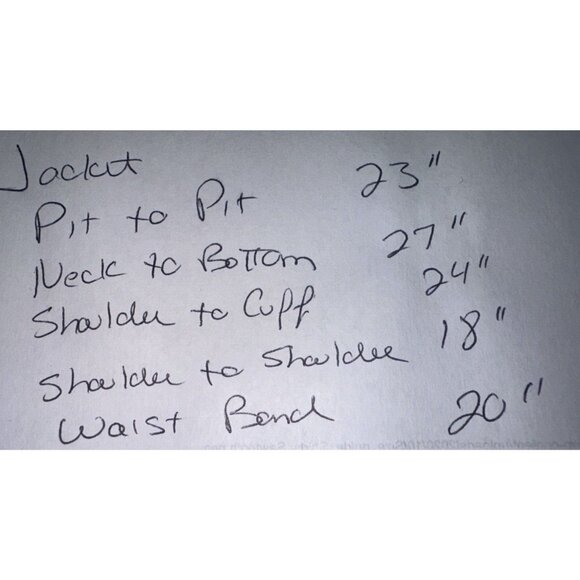 Jacket
Pit to Pit 23"
Neck to Bottom 27"
Shoulder to Cuff 24"
Shoulder to Shoulder 18"
Waist Band 20"